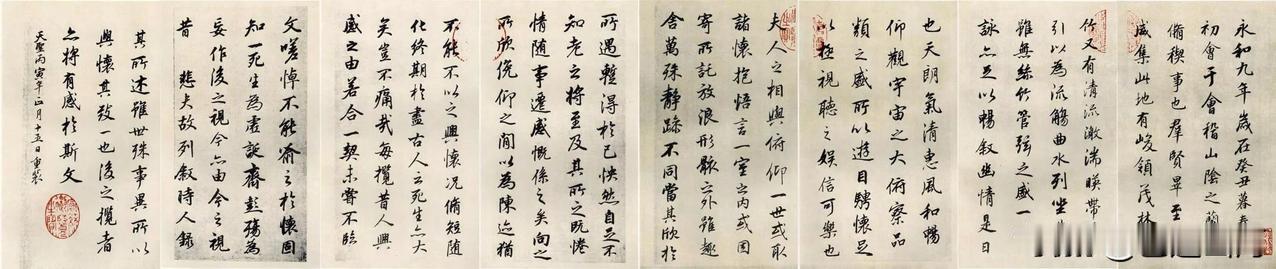 永和九年歲在癸丑暮春
初會于會稽山陰之蘭
脩稧事也羣賢畢至
咸集此地有峻領茂林
竹又有清流激湍暎帶
引以為流觴曲水列坐
雖無絲竹管弦之盛一
詠亦足以暢敘幽情是日
也天朗氣清惠風和暢
仰觀宇宙之大俯察品
類之盛所以遊目騁懷足
以極視聽之娛信可樂也
夫人之相與俯仰一世或取
諸懷抱悟言一室之內或因
寄所託放浪形骸之外雖趣
舍萬殊靜躁不同當其欣於
所遇蹔得於己怏然自足不
知老之將至及其所之既惓
情隨事遷感慨係之矣向之
所欣俛仰之間以為陳迹猶
不能不以之興懷況脩短隨
化終期於盡古人云死生亦大
矣豈不痛哉每攬昔人興
感之由若合一契未嘗不臨
文嗟悼不能喻之於懷固
知一死生為虛誕齊彭殤為
妄作後之視今亦由今之視
昔 悲夫故列敘時人錄
其所述雖世殊事異所以
興懷其致一也後之攬者
亦將有感於斯文
天聖丙寅年正月十五日重裝